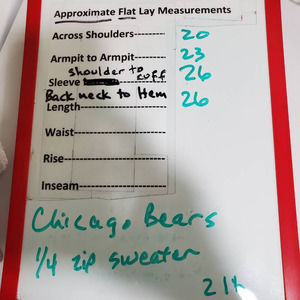 Approximate Flat Lay Measurements
Across Shoulders------- 20
Armpit to Armpit------- 23
shoulder to cuff
Sleeve 26
Back neck to Hem 26
Length---------
Waist---------
Rise----------
Inseam---------
Chicago Bears
1/4 zip sweater